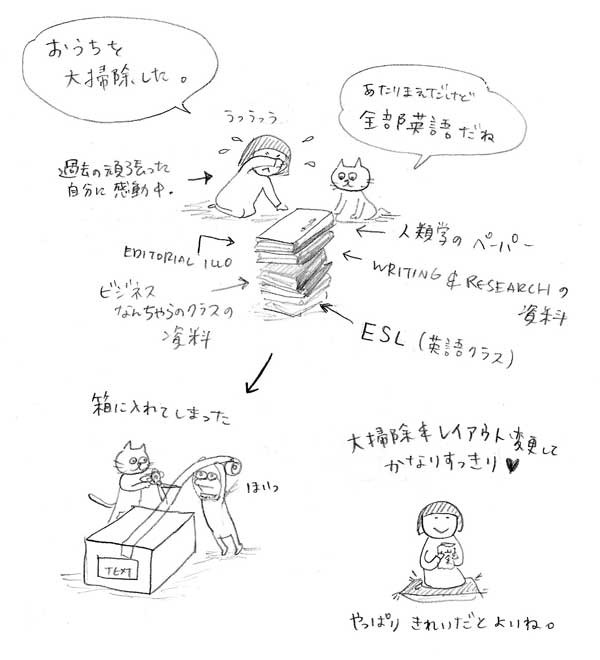 おうちを
大掃除した。
あたりまえだけど
全部英語だね
うっうっう
過去の頑張った
自分に感動中。
人類学のペーパー
EDITORIAL ILLO
WRITING & RESEARCHの
資料
ビジネス
なんちゃらのクラスの
資料
ESL (英語クラス)
箱に入れてしまった
ほいっ
TEXT
大掃除&レイアウト変更して
かなりすっきり♥
茶
やっぱりきれいだとよいね。